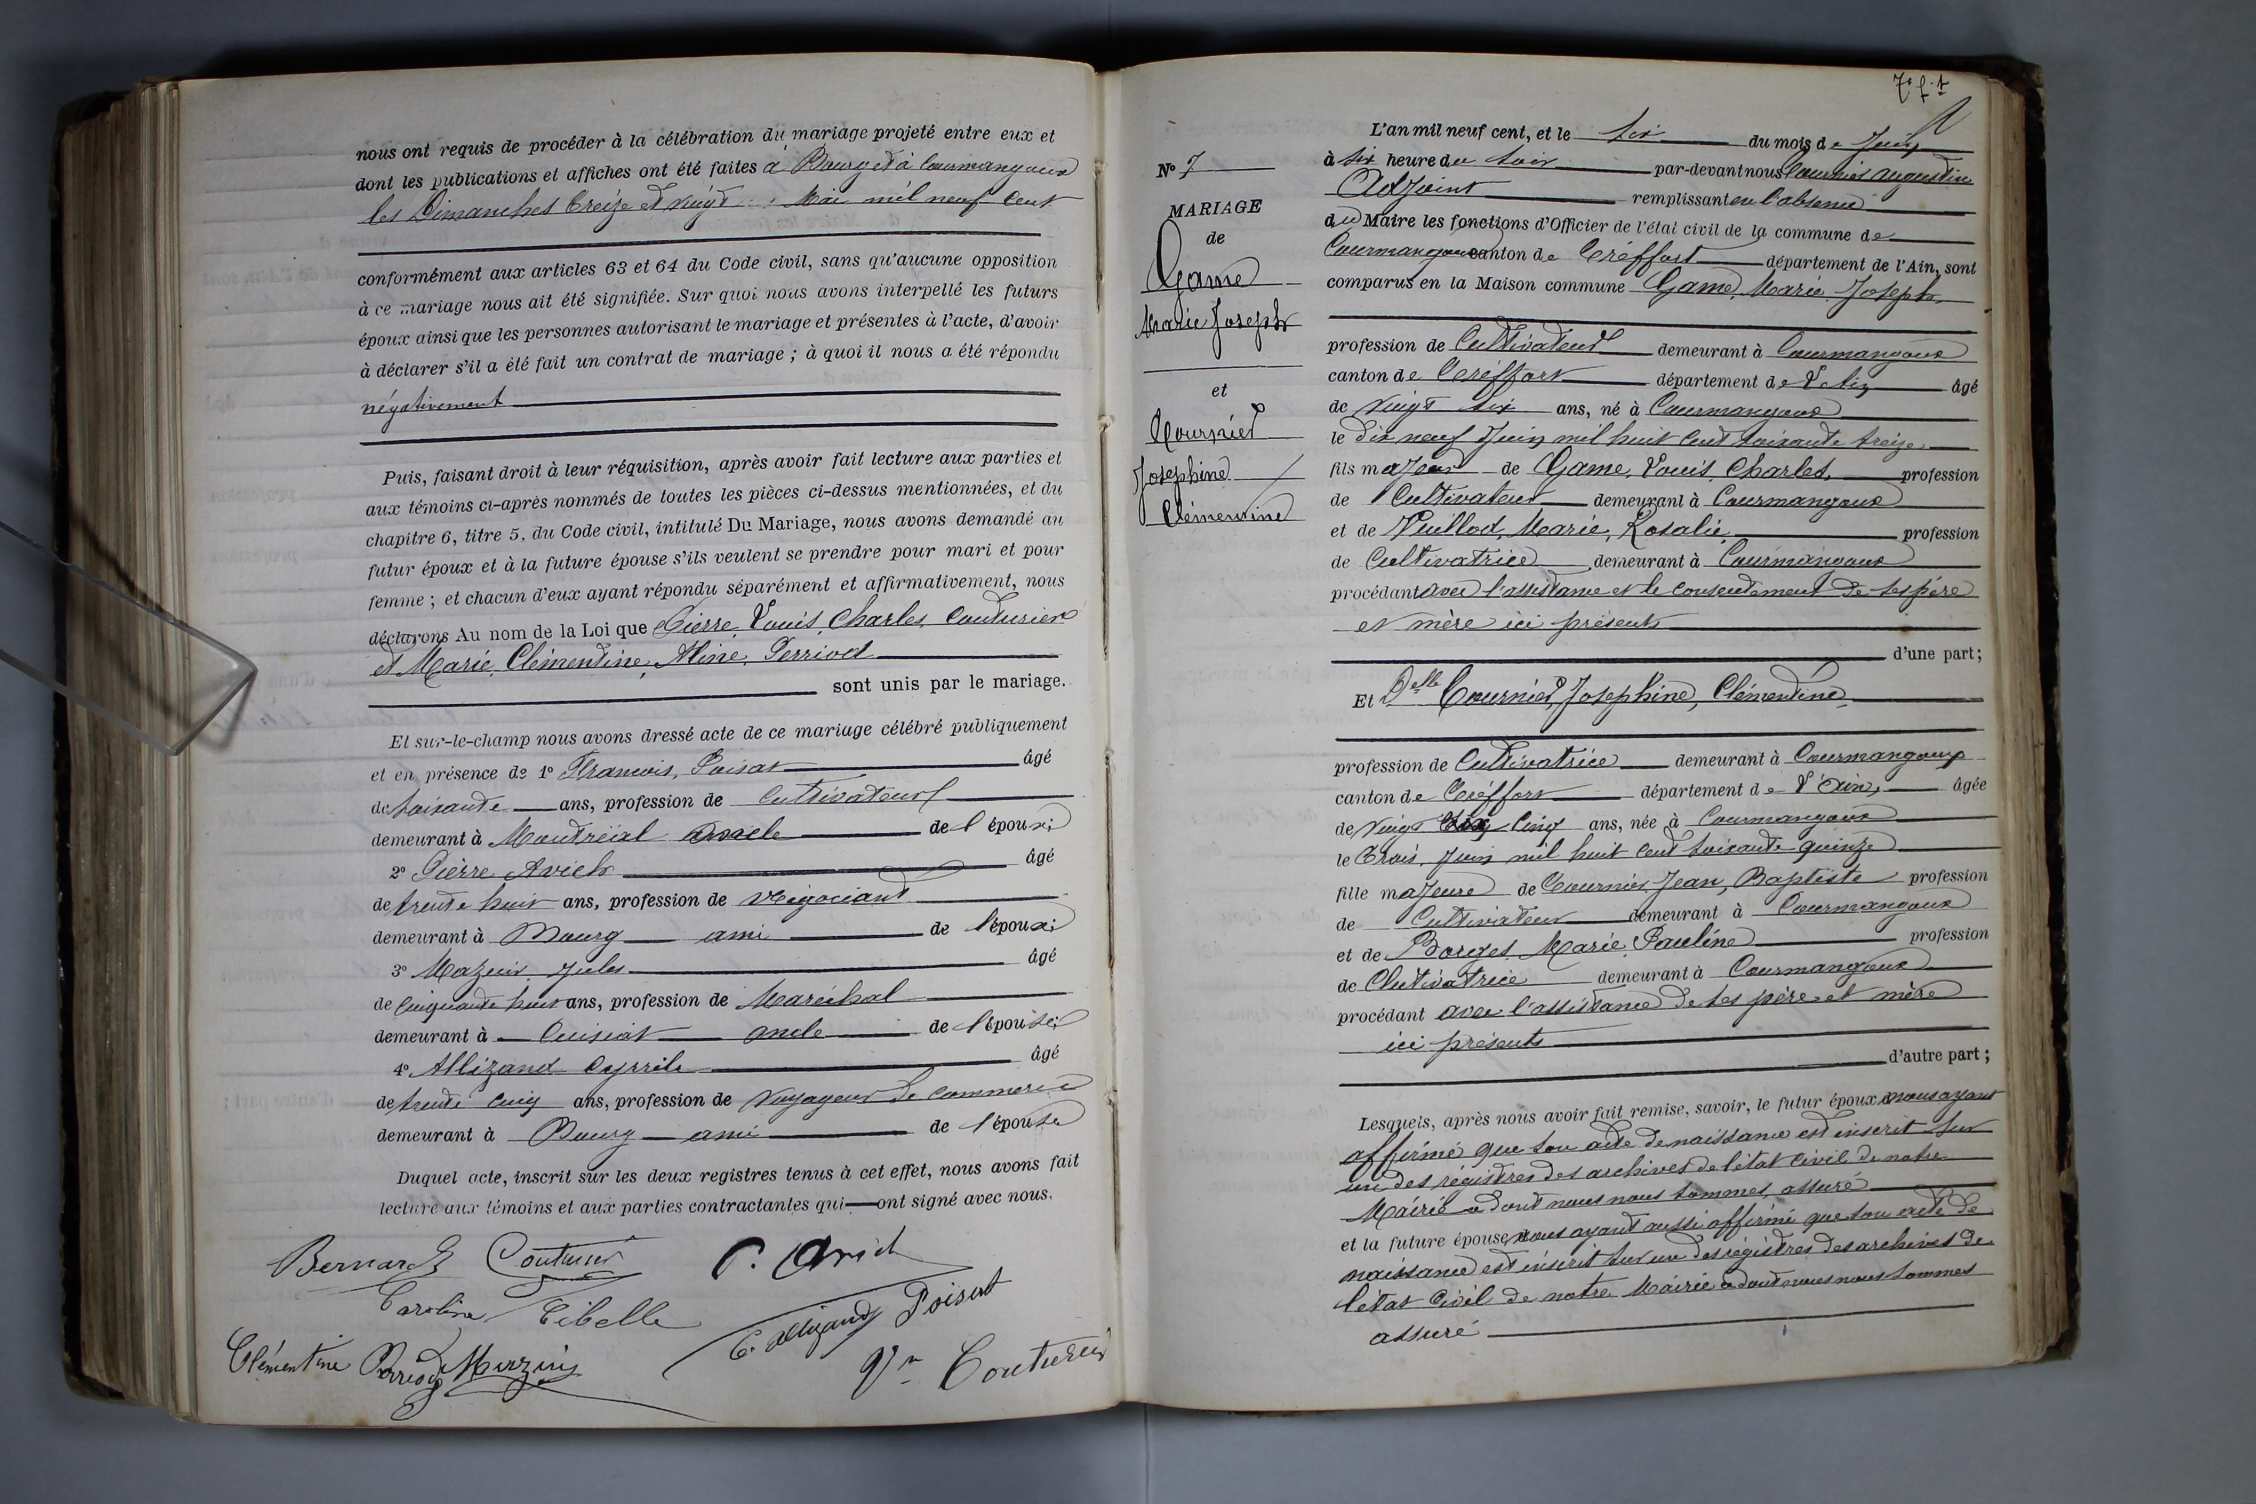 nous ont requis de procéder à la célébration du mariage projeté entre eux et
dont les publications et affiches ont été faites à Bourg et à Courmangoux
les Dimanches treize et vingt Mai mil neuf cent
conformément aux articles 63 et 64 du Code civil, sans qu'aucune opposition
à ce mariage nous ait été signifiée. Sur quoi nous avons interpellé les futurs
époux ainsi que les personnes autorisant le mariage et présentes à l'acte, d'avoir
à déclarer s'il a été fait un contrat de mariage ; à quoi il nous a été répondu
négativement
Puis, faisant droit à leur réquisition, après avoir fait lecture aux parties et
aux témoins ci-après nommés de toutes les pièces ci-dessus mentionnées, et du
chapitre 6, titre 5, du Code civil, intitulé Du Mariage, nous avons demandé au
futur époux et à la future épouse s'ils veulent se prendre pour mari et pour
femme ; et chacun d'eux ayant répondu séparément et affirmativement, nous
déclarons Au nom de la Loi que Pierre, Louis, Charles, Couturier
et Marie, Clémentine, Aline, Perriod
sont unis par le mariage.
Et sur-le-champ nous avons dressé acte de ce mariage célébré publiquement
et en présence de 1° François, Poisat âgé
de soixante ans, profession de Cultivateur
demeurant à Montréal oncle de l'époux;
2° Pierre Avich âgé
de trente huit ans, profession de Négociant
demeurant à Bourg ami de l'époux;
3° Mazuir Jules âgé
de cinquante huit ans, profession de Maréchal
demeurant à Cuisiat oncle de l'épouse;
4° Allizand Cyrrile âgé
de trente cinq ans, profession de Voyageur de commerce
demeurant à Bourg ami de l'épouse
Duquel acte, inscrit sur les deux registres tenus à cet effet, nous avons fait
lecture aux témoins et aux parties contractantes qui ont signé avec nous.
Bernard Couturier P. Avich
Caroline Tibelle C. Allizand Poisat
Clémentine Perriod Mazuir Vve Couturier
7e f. 1
N° 7
MARIAGE
de
Game
Marie Joseph
et
Cournier
Josephine
Clémentine
L'an mil neuf cent, et le six du mois de Juin
à six heure du soir par-devant nous Cournier Augustin
Adjoint remplissant en l'absence
du Maire les fonctions d'Officier de l'état civil de la commune de
Courmangoux canton de Tréffort département de l'Ain, sont
comparus en la Maison commune Game, Marie Joseph,
profession de Cultivateur demeurant à Courmangoux
canton de Tréffort département de l'Ain âgé
de vingt six ans, né à Courmangoux
le dix neuf Juin mil huit cent soixante treize
fils majeur de Game, Louis, Charles, profession
de Cultivateur demeurant à Courmangoux
et de Puillod, Marie, Rosalie, profession
de Cultivatrice demeurant à Courmangoux
procédant avec l'assistance et le consentement de ses père
et mère ici présents
d'une part;
Et Delle Cournier, Josephine, Clémentine,
profession de Cultivatrice demeurant à Courmangoux
canton de Tréffort département de l'Ain, âgée
de vingt cinq ans, née à Courmangoux
le trois Juin mil huit cent soixante quinze
fille majeure de Cournier Jean, Baptiste profession
de Cultivateur demeurant à Courmangoux
et de Borges Marie Pauline profession
de Clutivatrice demeurant à Courmangoux
procédant avec l'assistance de ses père et mère
ici présents
d'autre part ;
Lesquels, après nous avoir fait remise, savoir, le futur époux, nous ayant
affirmé que son acte de naissance est inscrit sur
un des régistres des archives de l'état civil de notre
Mairie dont nous nous sommes assuré
et la future épouse, nous ayant aussi affirmé que son acte de
naissance est inscrit sur un des régistres des archives de
l'état civil de notre Mairie dont nous nous sommes
assuré